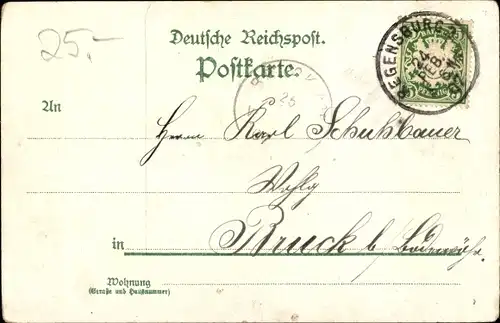 25.-
Deutsche Reichspost.
Postkarte.
REGENSBURG
24
An
25
Herrn Karl Schuhbauer
in Bruck b/ Bodenwöhr.
Wohnung
(Straße und Hausnummer)